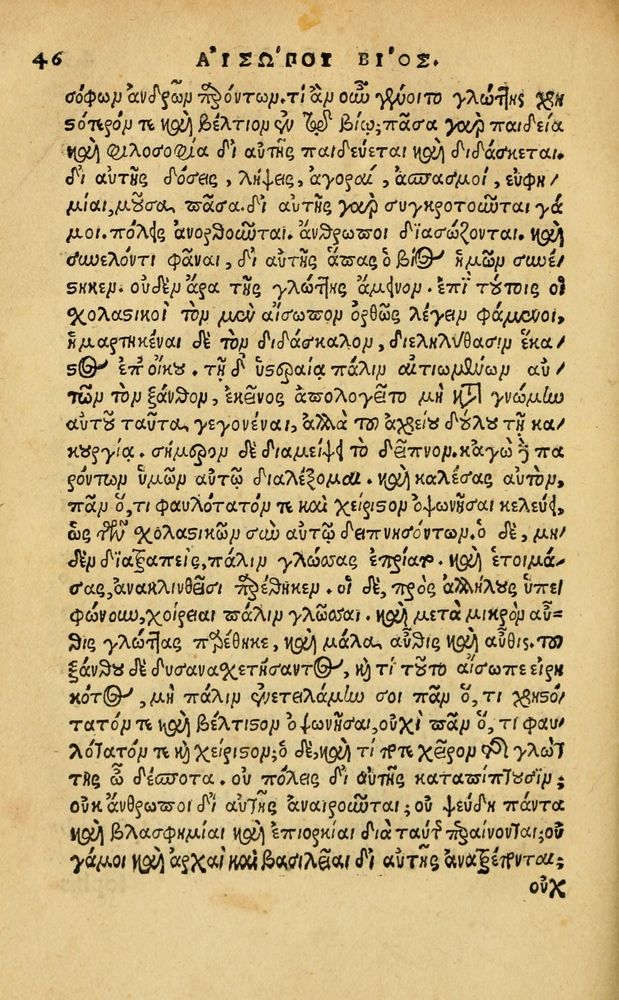 46 ΑἸΣΩΠΟΥ ΒΙΌΣ.
σόφων ἀνδρῶν παρόντων. τί ἂν οὖν γένοιτο γλώττης χρη
στότερόν τε καὶ βέλτιον ἐν τῷ βίῳ; πᾶσα γὰρ παιδεία
καὶ φιλοσοφία δι' αὐτῆς παιδεύεται καὶ διδάσκεται.
δι' αὐτῆς δόσεις, λήψεις, ἀγοραί, ἀσπασμοί, εὐφη/
μίαι, μοῦσα πᾶσα. δι' αὐτῆς γὰρ συγκροτοῦνται γά
μοι. πόλεις ἀνορθοῦνται. ἄνθρωποι διασώζονται. καὶ
συνελόντι φᾶναι, δι' αὐτῆς ἅπας ὁ βίος ἡμῶν συνέ/
στηκεν. οὐδὲν ἄρα τῆς γλώττης ἄμεινον. ἐπὶ τούτοις οἱ
σχολαστικοὶ τὸν μὲν αἴσωπον ὀρθῶς λέγειν φάμενοι,
ἡμαρτηκέναι δὲ τὸν διδάσκαλον, διεληλύθασιν ἕκα/
στος ἐπ' οἴκου. τῇ δ' ὑστεραίᾳ πάλιν αἰτιωμένων αὐ/
τῶν τὸν ξάνθον, ἐκεῖνος ἀπολογεῖτο μὴ κατὰ γνώμην
αὐτοῦ ταῦτα γεγονέναι, ἀλλὰ τοῦ ἀχρείου δούλου τῇ κα/
κουργίᾳ. σήμερον δὲ διαμείψει τὸ δεῖπνον. κἀγὼ δὲ πα
ρόντων ὑμῶν αὐτῷ διαλέξομαι. καὶ καλέσας αὐτὸν,
πᾶν ὅ, τι φαυλότατόν τε καὶ χείριστον ὀψωνῆσαι κελεύει,
ὡς τῶν σχολαστικῶν σὺν αὐτῷ δειπνησόντων. ὁ δὲ, μη/
δὲν διατραπεὶς, πάλιν γλώσσας ἐπρίατο. καὶ ἑτοιμά/
σας, ἀνακλινθεῖσι παρέθηκεν. οἱ δὲ, πρὸς ἀλλήλους ὑπε/
φώνουν, χοίρειαι πάλιν γλῶσσαι. καὶ μετὰ μικρὸν αὖ=
θις γλώττας παρέθηκε, καὶ μάλα αὖθις καὶ αὖθις. τοῦ
ξάνθου δὲ δυσανασχετήσαντος, καὶ τί τοῦτο αἴσωπε εἰρη
κότος, μὴ πάλιν ἐνετειλάμην σοι πᾶν ὅ, τι χρηστό/
τατόν τε καὶ βέλτιστον ὀψωνῆσαι, οὐχὶ πᾶν ὅ, τι φαυ/
λότατόν τε καὶ χείριστον; ὁ δὲ, καὶ τί ποτε χεῖρον ἐστὶ γλώτ
της ὦ δέσποτα. οὐ πόλεις δι' αὐτῆς καταπίπτουσιν;
οὐκ ἄνθρωποι δι' αὐτῆς ἀναιροῦνται; οὐ ψεύδη πάντα
καὶ βλασφημίαι καὶ ἐπιορκίαι διὰ ταύτης περαίνονται; οὐ
γάμοι καὶ ἀρχαὶ καὶ βασιλεῖαι δι' αὐτῆς ἀνατρέπονται;
οὐχ